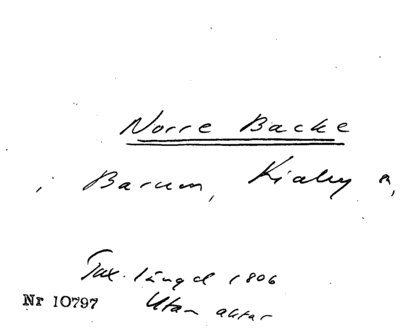 Norre Backe
i Barum, Kiaby s,
Tax. längd 1806
Nr 10797
Utan aktar